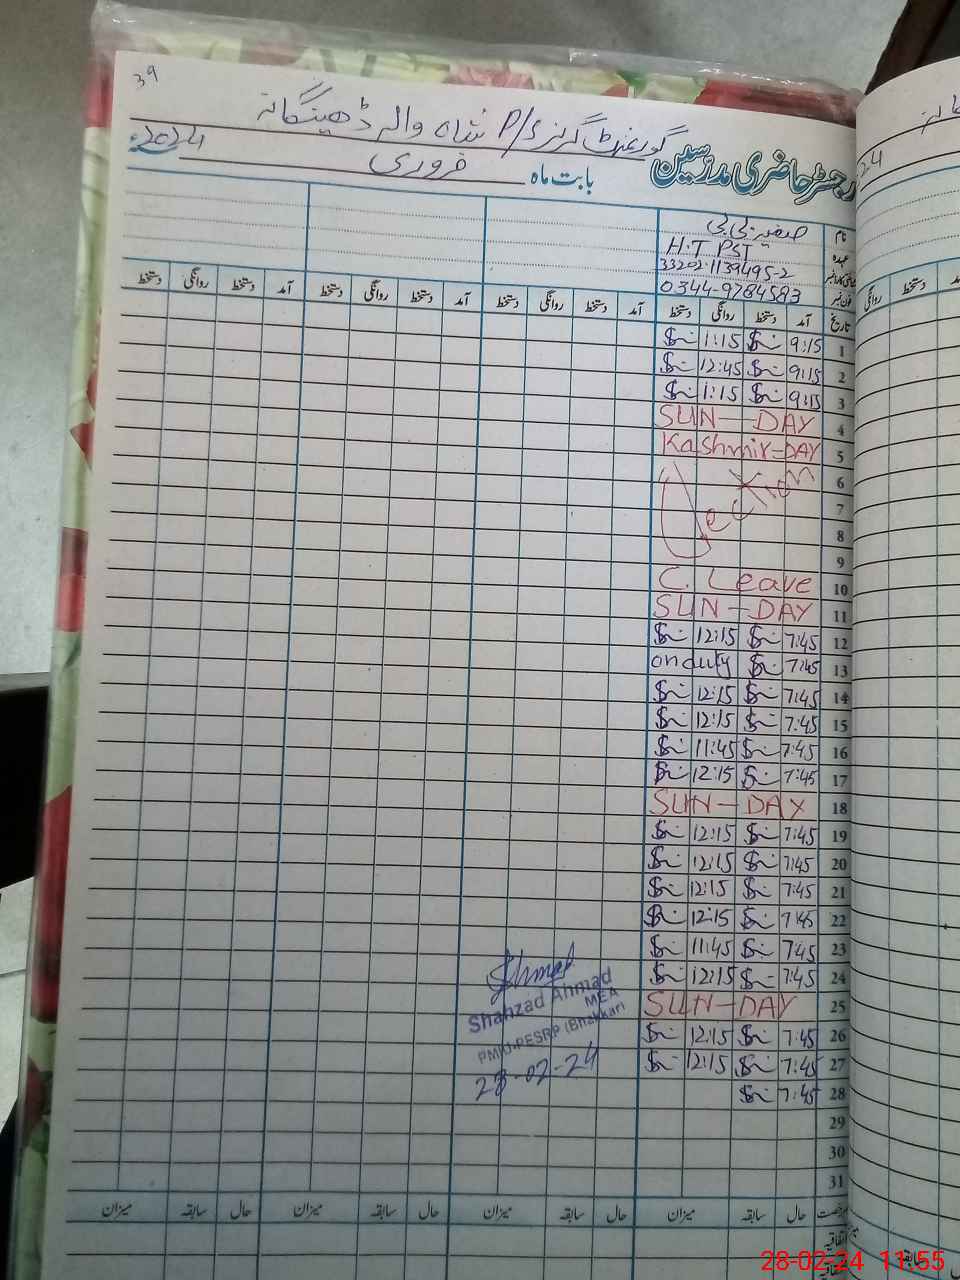 39
گورنمنٹ گرلز P/S شاہ والہ ڈھینگانہ
رجسٹر حاضری مدرسین بابت ماہ فروری 2024ء
نام صفیہ بی بی
عہدہ H.T PST
33202-1139495-2
فون نمبر 0344-9784583
تاریخ آمد دستخط روانگی دستخط آمد دستخط روانگی دستخط آمد دستخط روانگی دستخط آمد دستخط روانگی دستخط
1 9:15 1:15
2 9:15 12:45
3 9:15 1:15
4 SUN-DAY
5 Kashmir-DAY
6
7
8
9
10 C. Leave
11 SUN-DAY
12 7:45 12:15
13 7:45 on duty
14 7:45 12:15
15 7:45 12:15
16 7:45 11:45
17 7:45 12:15
18 SUN-DAY
19 7:45 12:15
20 7:45 12:15
21 7:45 12:15
22 7:45 12:15
23 7:45 11:45
24 7:45 12:15
25 SUN-DAY
26 7:45 12:15
27 7:45 12:15
28 7:45
29
30
31
Shahzad Ahmad
MEA
PMIU-PESRP (Bhakkar)
28-02-24
حال سابقہ میزان حال سابقہ میزان حال سابقہ میزان حال سابقہ میزان
اتفاقیہ
28-02-24 11:55